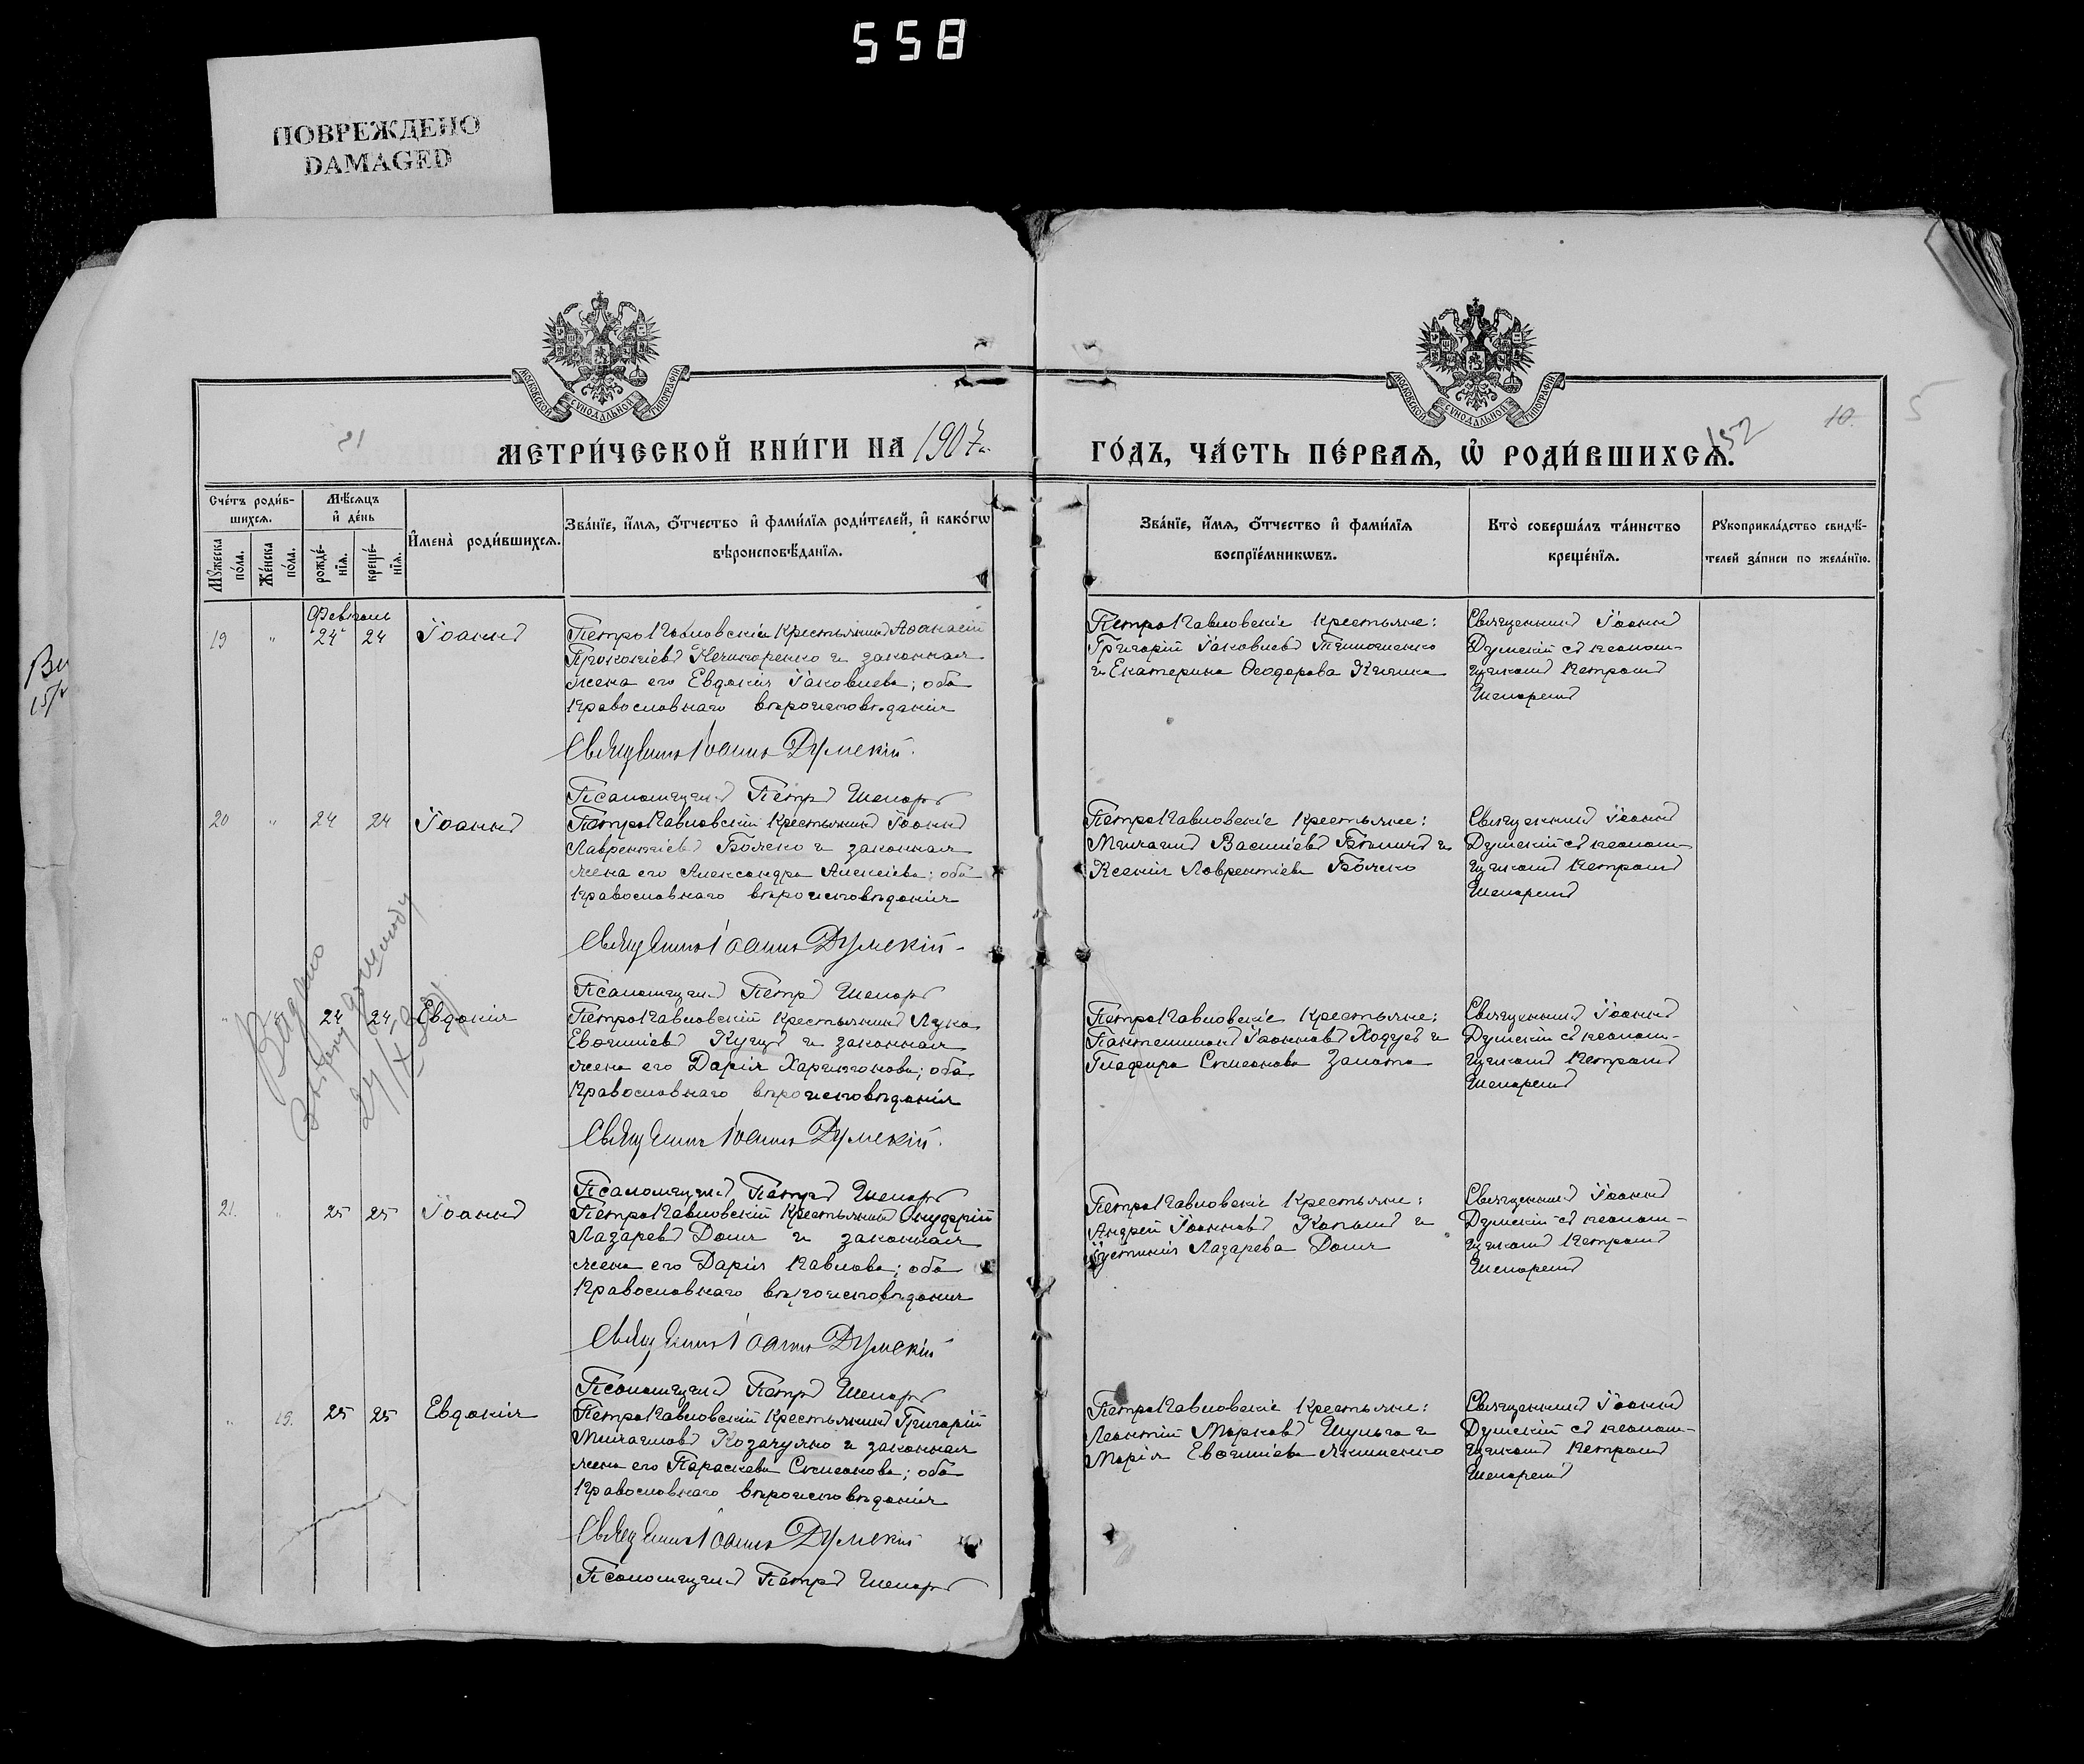 558
ПОВРЕЖДЕНО
DAMAGED
МОСКОВСКОЙ СѴНОДАЛЬНОЙ ТИПОГРАФІИ
МОСКОВСКОЙ СѴНОДАЛЬНОЙ ТИПОГРАФІИ
МЕТРИ́ЧЕСКОЙ КНИ́ГИ НА 1907 г.
ГО́ДЪ, ЧА́СТЬ ПЕ́РВАѦ, Ѡ҆ РОДИ́ВШИХСѦ.
152
10.
5
Сче́тъ роди́в-
шихсѧ.
Мꙋжеска по́ла.
Же́нска по́ла.
Мѣ́сѧцъ
и҆ де́нь
рожде́-
нїѧ.
креще́-
нїѧ.
И҆мена̀ роди́вшихсѧ.
Зва́нїе, и҆́мѧ, ѻ҆́тчество и҆ фами́лїѧ роди́телей, и҆ како́гѡ
вѣроисповѣ́данїѧ.
Зва́нїе, и҆́мѧ, ѻ҆́тчество и҆ фами́лїѧ
воспрїе́мникѡвъ.
Кто̀ соверша́лъ та́инство
креще́нїѧ.
Рꙋкоприкла́дство свидѣ́-
телей за́писи по жела́нїю.
Февраль
19 " 24 24 Іоаннъ
Петропавловскій крестьянинъ Аѳанасій
Прокопіевъ Нечипоренко и законная
жена его Евдокія Іаковлева; оба
православнаго вѣроисповѣданія
Священникъ Іоаннъ Думскій.
Псаломщикъ Петръ Шепарь
Петропавловскіе крестьяне:
Григорій Іаковлевъ Тимошенко
и Екатерина Ѳеодорова
Священникъ Іоаннъ
Думскій съ псалом-
щикомъ Петромъ
Шепаремъ
20 " 24 24 Іоаннъ
Петропавловскій крестьянинъ Іоаннъ
Лаврентіевъ Бояско и законная
жена его Александра Алексіева; оба
православнаго вѣроисповѣданія
Священникъ Іоаннъ Думскій
Псаломщикъ Петръ Шепарь
Петропавловскіе крестьяне:
Михаилъ Василіевъ и
Ксенія Лаврентіева Бояско
Священникъ Іоаннъ
Думскій съ псалом-
щикомъ Петромъ
Шепаремъ
24 24 Евдокія
Петропавловскій крестьянинъ Лука
Евѳиміевъ Куцъ и законная
жена его Дарія Харитонова; оба
православнаго вѣроисповѣданія
Священникъ Іоаннъ Думскій.
Псаломщикъ Петръ Шепарь
Петропавловскіе крестьяне:
Пантелимонъ Іоанновъ Ходусъ и
Глафира Симеонова Залата
Священникъ Іоаннъ
Думскій съ псалом-
щикомъ Петромъ
Шепаремъ
Видано
21. " 25 25 Іоаннъ
Петропавловскій крестьянинъ
Лазаревъ Доля и законная
жена его Дарія Павлова; оба
православнаго вѣроисповѣданія
Священникъ Іоаннъ Думскій
Псаломщикъ Петръ Шепарь
Петропавловскіе крестьяне:
Андрей Іоанновъ и
Іустинія Лазарева Доля
Священникъ Іоаннъ
Думскій съ псалом-
щикомъ Петромъ
Шепаремъ
" 15. 25 25 Евдокія
Петропавловскій крестьянинъ Григорій
Михаиловъ Козачулко и законная
жена его Параскева Симеонова; оба
православнаго вѣроисповѣданія
Священникъ Іоаннъ Думскій
Псаломщикъ Петръ Шепарь
Петропавловскіе крестьяне:
Леонтій Марковъ Шульга и
Марія Евѳиміева Якименко
Священникъ Іоаннъ
Думскій съ псалом-
щикомъ Петромъ
Шепаремъ